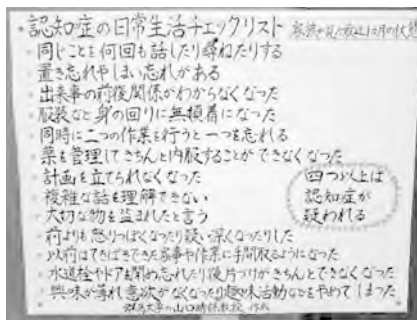 ・認知症の日常生活チェックリスト 家族が見た最近1ヶ月の状態
・同じことを何回も話したり尋ねたりする
・置き忘れやしまい忘れがある
・出来事の前後関係がわからなくなった
・服装など身の回りに無頓着になった
・同時に二つの作業を行うと一つを忘れる
・薬を管理してきちんと内服することができなくなった
・計画を立てられなくなった
・複雑な話を理解できない
・大切な物を盗まれたと言う
・前よりも怒りっぽくなったり疑い深くなったりした
・以前はてきぱきできた家事や作業に手間取るようになった
・水道栓やドアを閉め忘れたり後片づけがきちんとできなくなった
・興味が薄れ意欲がなくなったり趣味活動などをやめてしまった
群馬大学の山口晴保教授 作成
四つ以上は
認知症が
疑われる